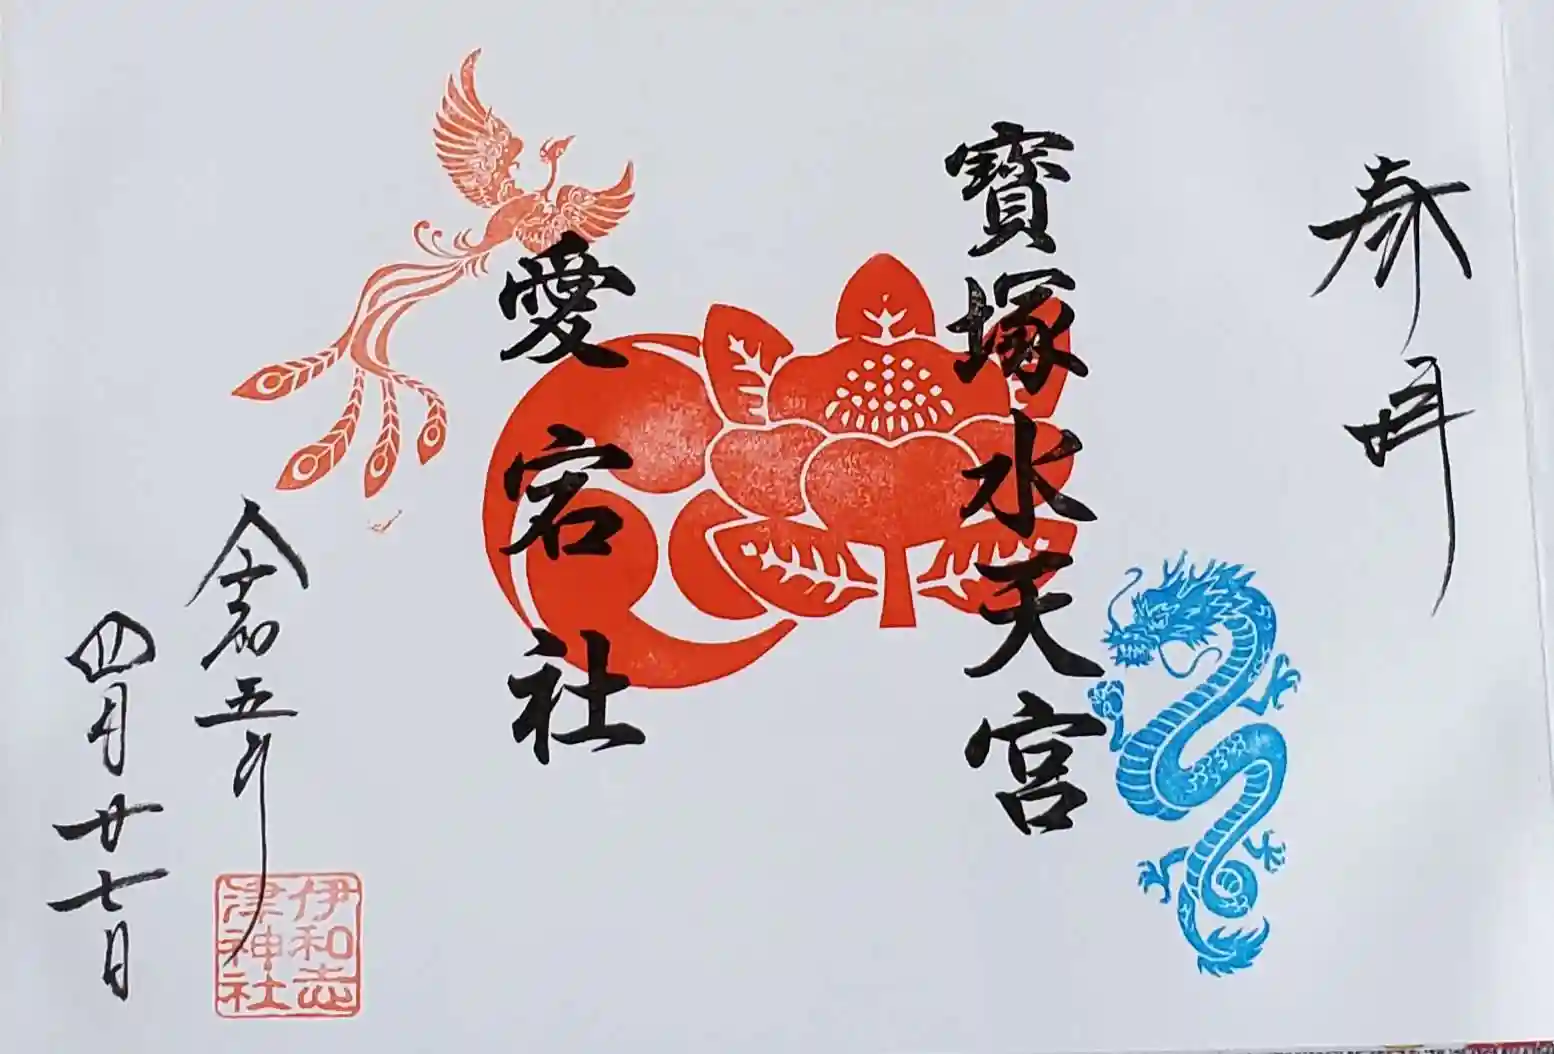 奉拝
寶塚水天宮
愛宕社
令和五年
四月廿七日
伊和志
津神社